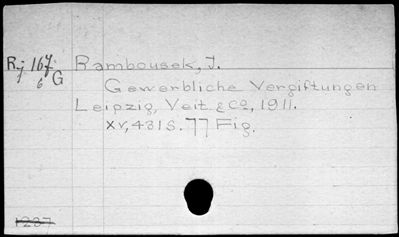 Rj 167 Rambousek, J.
6 G
Gewerbliche Vergiftungen
Leipzig, Veit & Co, 1911.
XV, 431 S. 77 Fig.
1237